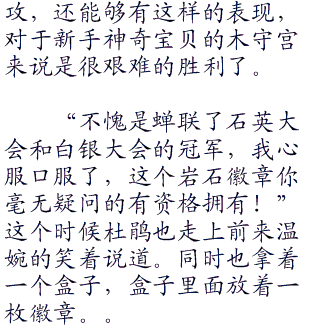 攻，还能够有这样的表现，
对于新手神奇宝贝的木守宫
来说是很艰难的胜利了。
“不愧是蝉联了石英大
会和白银大会的冠军，我心
服口服了，这个岩石徽章你
毫无疑问的有资格拥有！”
这个时候杜鹃也走上前来温
婉的笑着说道。同时也拿着
一个盒子，盒子里面放着一
枚徽章。。